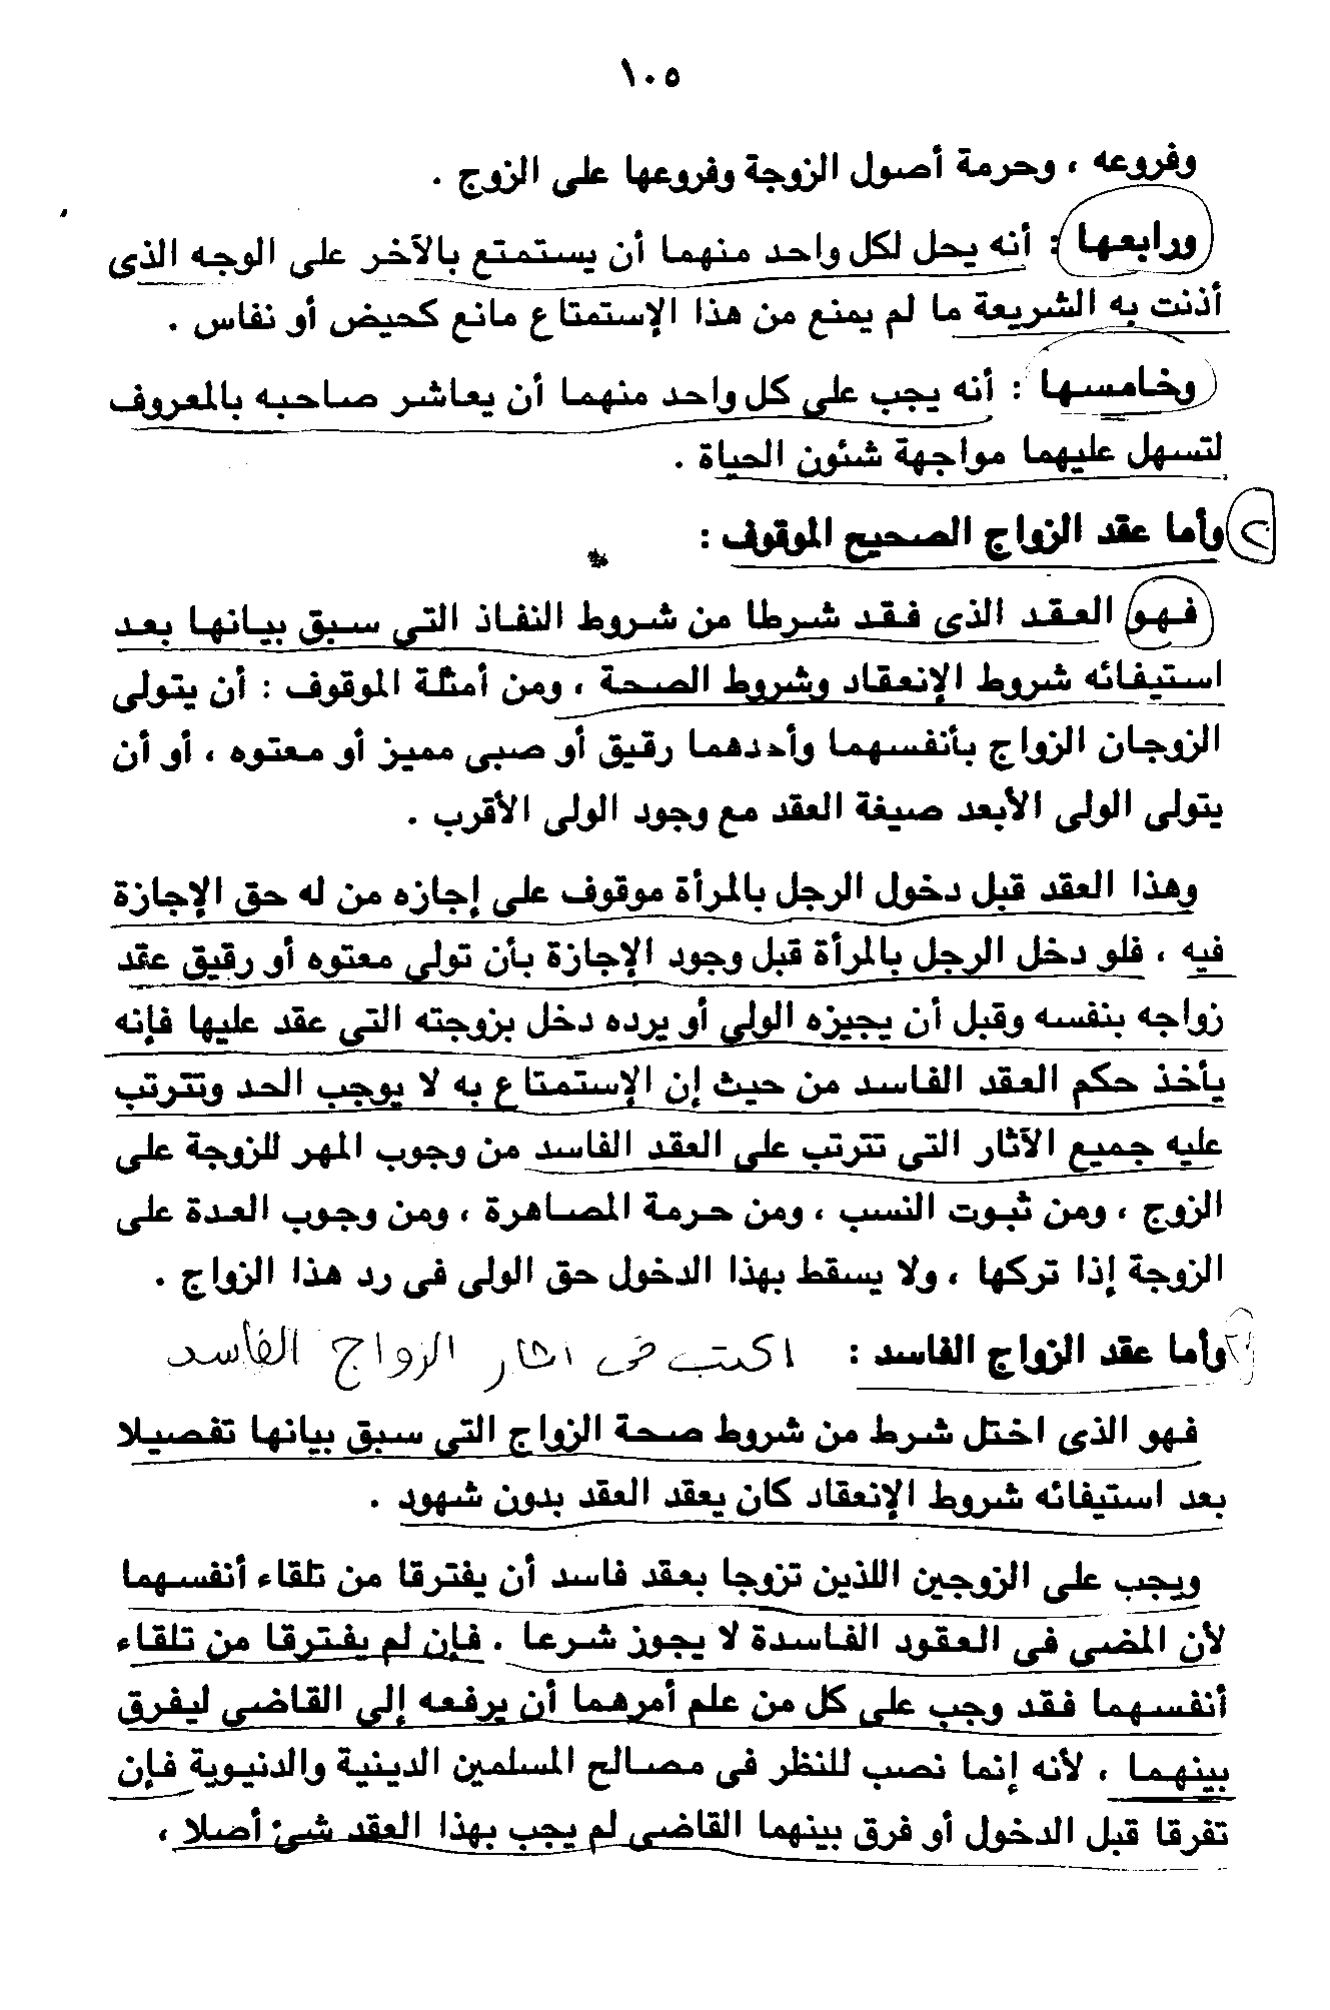 ١٠٥
وفروعه ، وحرمة أصول الزوجة وفروعها على الزوج .
ورابعها : أنه يحل لكل واحد منهما أن يستمتع بالآخر على الوجه الذى
أذنت به الشريعة ما لم يمنع من هذا الإستمتاع مانع كحيض أو نفاس .
وخامسها : أنه يجب على كل واحد منهما أن يعاشر صاحبه بالمعروف
لتسهل عليهما مواجهة شئون الحياة .
٢ وأما عقد الزواج الصحيح الموقوف :
فهو العقد الذى فقد شرطا من شروط النفاذ التى سبق بيانها بعد
استيفائه شروط الإنعقاد وشروط الصحة ، ومن أمثلة الموقوف : أن يتولى
الزوجان الزواج بأنفسهما وأحدهما رقيق أو صبى مميز أو معتوه ، أو أن
يتولى الولى الأبعد صيغة العقد مع وجود الولى الأقرب .
وهذا العقد قبل دخول الرجل بالمرأة موقوف على إجازه من له حق الإجازة
فيه ، فلو دخل الرجل بالمرأة قبل وجود الإجازة بأن تولى معتوه أو رقيق عقد
زواجه بنفسه وقبل أن يجيزه الولي أو يرده دخل بزوجته التى عقد عليها فإنه
يأخذ حكم العقد الفاسد من حيث إن الإستمتاع به لا يوجب الحد وتترتب
عليه جميع الآثار التى تترتب على العقد الفاسد من وجوب المهر للزوجة على
الزوج ، ومن ثبوت النسب ، ومن حرمة المصاهرة ، ومن وجوب العدة على
الزوجة إذا تركها ، ولا يسقط بهذا الدخول حق الولى فى رد هذا الزواج .
وأما عقد الزواج الفاسد : اكتب فى اثار الزواج الفاسد
فهو الذى اختل شرط من شروط صحة الزواج التى سبق بيانها تفصيلا
بعد استيفائه شروط الإنعقاد كان يعقد العقد بدون شهود .
ويجب على الزوجين اللذين تزوجا بعقد فاسد أن يفترقا من تلقاء أنفسهما
لأن المضى فى العقود الفاسدة لا يجوز شرعا . فإن لم يفترقا من تلقاء
أنفسهما فقد وجب على كل من علم أمرهما أن يرفعه إلى القاضى ليفرق
بينهما ، لأنه إنما نصب للنظر فى مصالح المسلمين الدينية والدنيوية فإن
تفرقا قبل الدخول أو فرق بينهما القاضى لم يجب بهذا العقد شئ أصلا ،